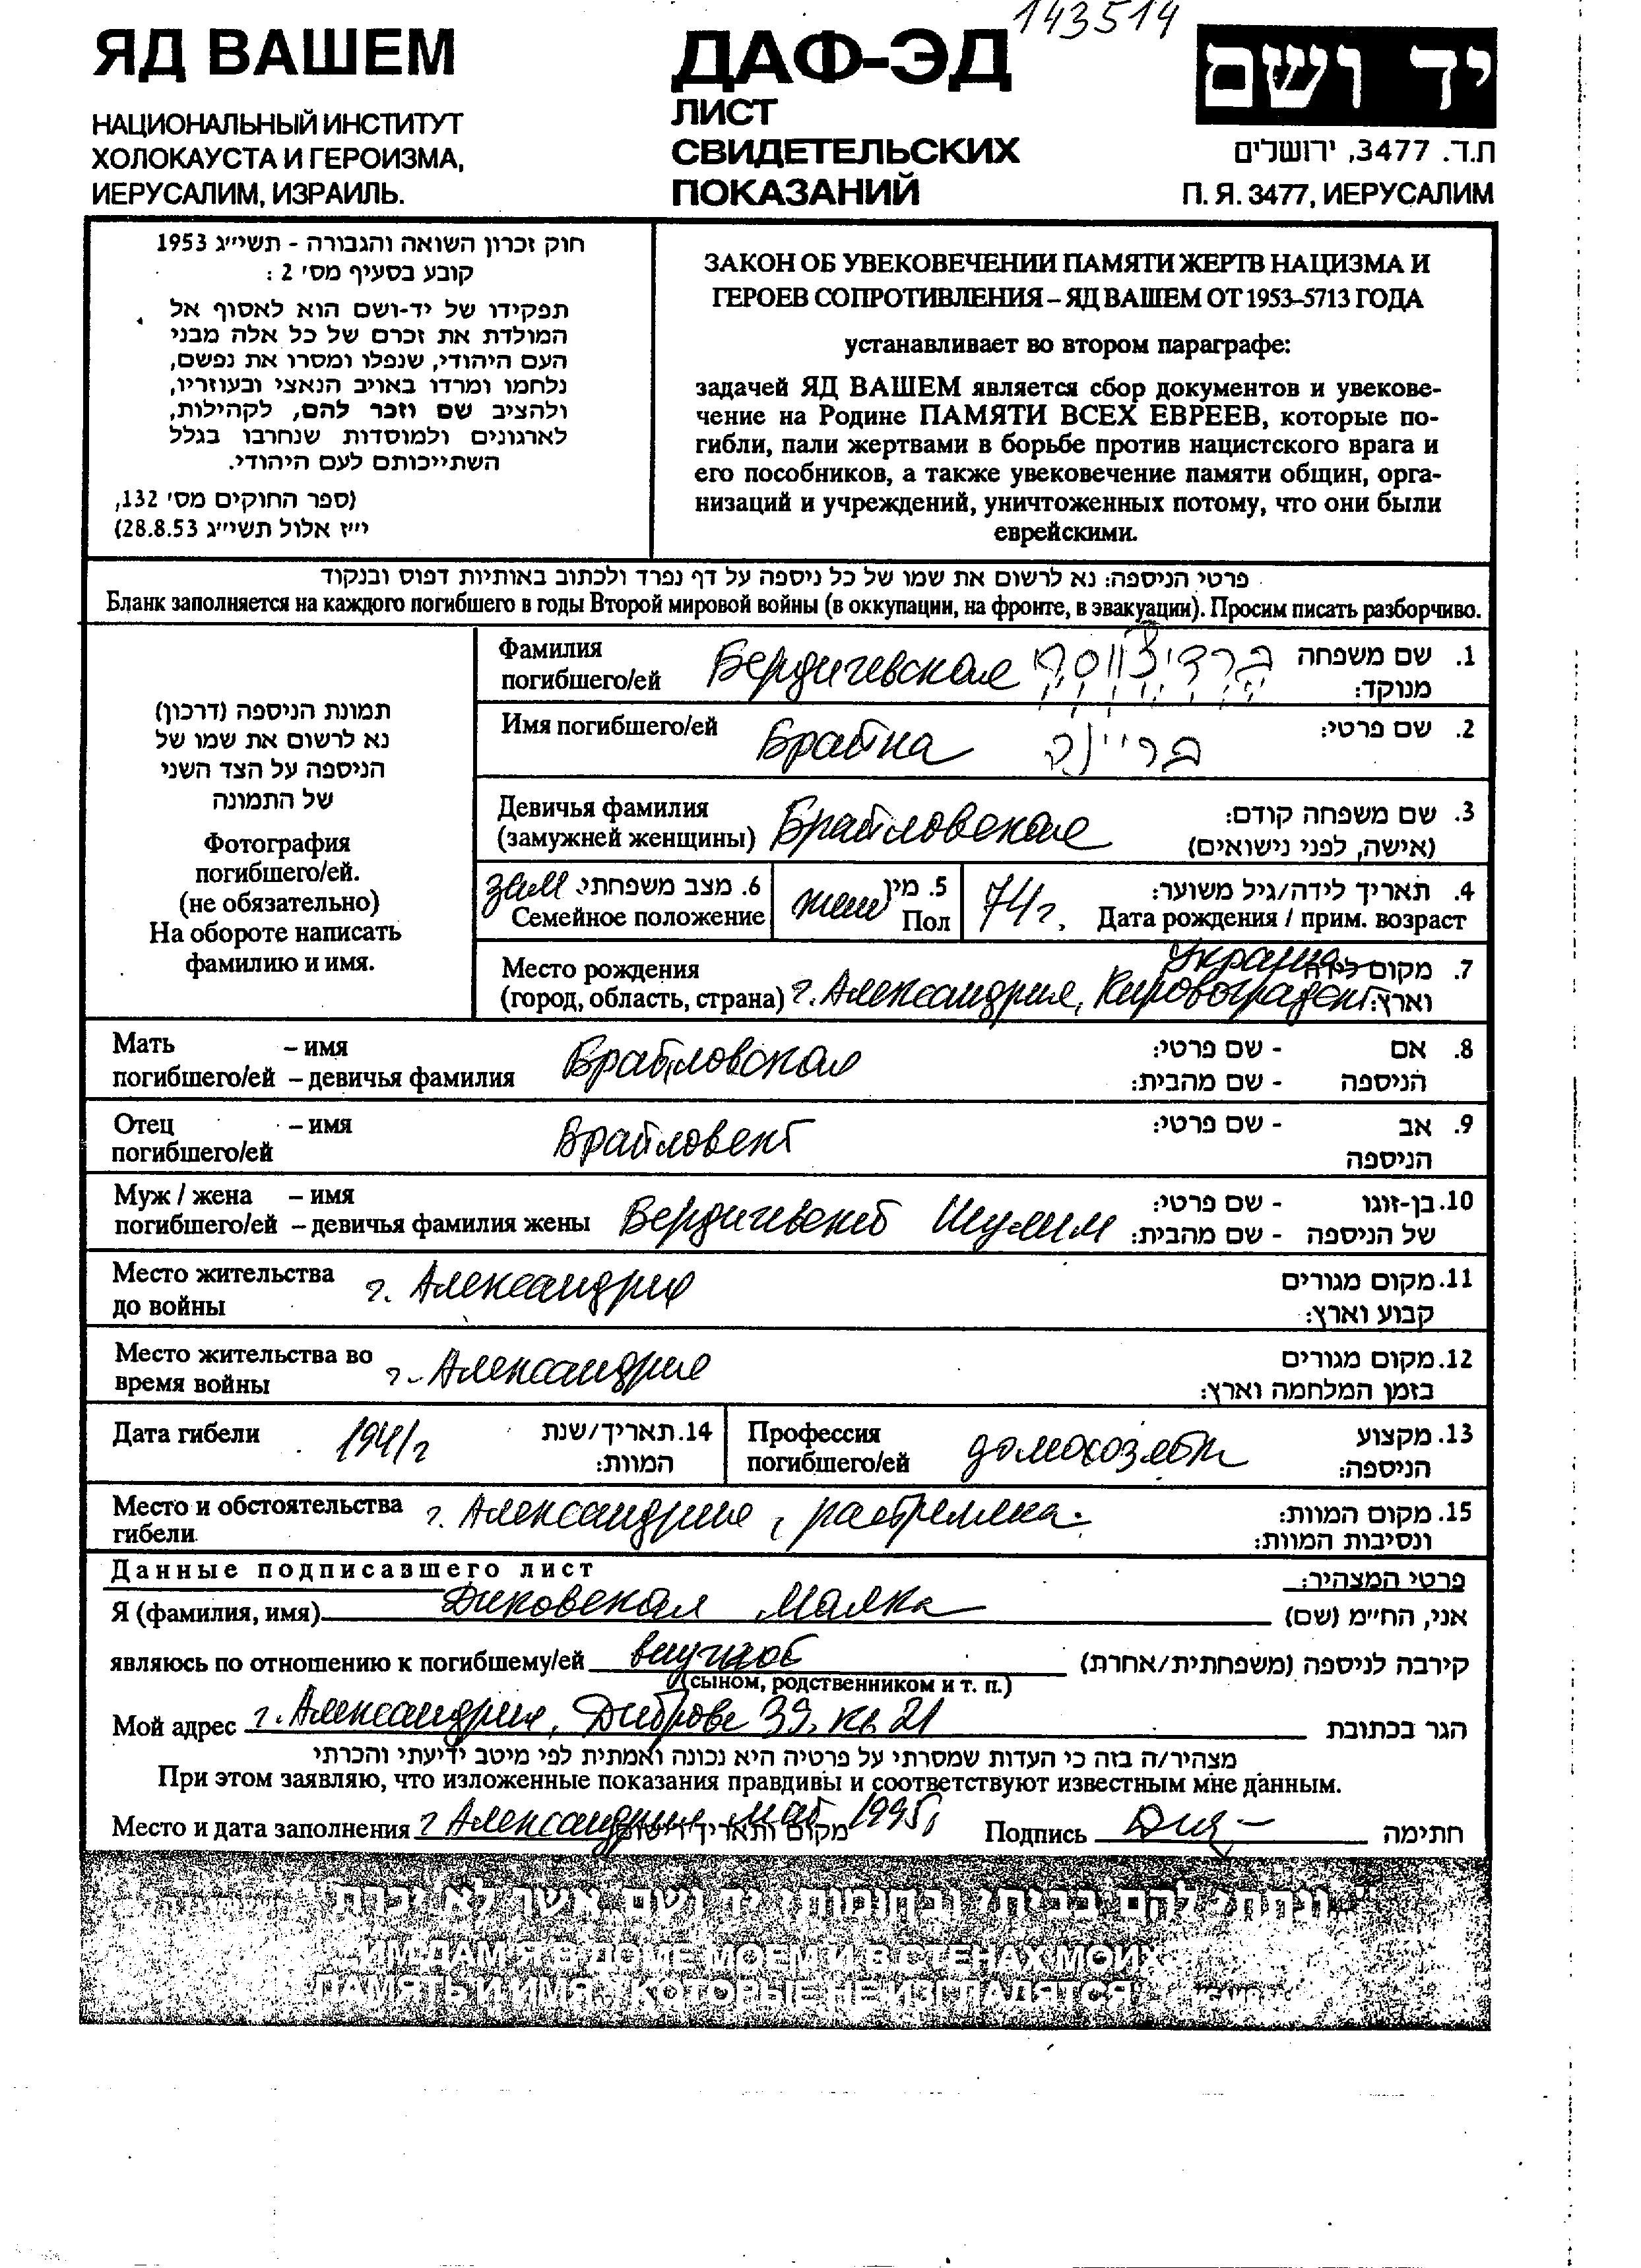 143514
ЯД ВАШЕМ
НАЦИОНАЛЬНЫЙ ИНСТИТУТ
ХОЛОКАУСТА И ГЕРОИЗМА,
ИЕРУСАЛИМ, ИЗРАИЛЬ.
ДАФ-ЭД
ЛИСТ
СВИДЕТЕЛЬСКИХ
ПОКАЗАНИЙ
יד ושם
ת.ד. 3477, ירושלים
П. Я. 3477, ИЕРУСАЛИМ
חוק זכרון השואה והגבורה - תשי״ג 1953
קובע בסעיף מס׳ 2 :
תפקידו של יד-ושם הוא לאסוף אל
המולדת את זכרם של כל אלה מבני
העם היהודי, שנפלו ומסרו את נפשם,
נלחמו ומרדו באויב הנאצי ובעוזריו,
ולהציב שם וזכר להם, לקהילות,
לארגונים ולמוסדות שנחרבו בגלל
השתייכותם לעם היהודי.
(ספר החוקים מס׳ 132,
י״ז אלול תשי״ג 28.8.53)
ЗАКОН ОБ УВЕКОВЕЧЕНИИ ПАМЯТИ ЖЕРТВ НАЦИЗМА И
ГЕРОЕВ СОПРОТИВЛЕНИЯ – ЯД ВАШЕМ ОТ 1953–5713 ГОДА
устанавливает во втором параграфе:
задачей ЯД ВАШЕМ является сбор документов и увекове-
чение на Родине ПАМЯТИ ВСЕХ ЕВРЕЕВ, которые по-
гибли, пали жертвами в борьбе против нацистского врага и
его пособников, а также увековечение памяти общин, орга-
низаций и учреждений, уничтоженных потому, что они были
еврейскими.
פרטי הניספה: נא לרשום את שמו של כל ניספה על דף נפרד ולכתוב באותיות דפוס ובנקוד
Бланк заполняется на каждого погибшего в годы Второй мировой войны (в оккупации, на фронте, в эвакуации). Просим писать разборчиво.
תמונת הניספה (דרכון)
נא לרשום את שמו של
הניספה על הצד השני
של התמונה
Фотография
погибшего/ей.
(не обязательно)
На обороте написать
фамилию и имя.
Фамилия погибшего/ей Бердичевская 1. שם משפחה
מנוקד:
Имя погибшего/ей Брайна בריינה 2. שם פרטי:
Девичья фамилия Брайловская 3. שם משפחה קודם:
(замужней женщины) (אישה, לפני נישואים)
зам 6. מצב משפחתי: жен 5. מין 74 г. 4. תאריך לידה/גיל משוער:
Семейное положение Пол Дата рождения / прим. возраст
Место рождения Украина 7. מקום לידה
(город, область, страна) г. Александрия, Кировоград וארץ:
Мать – имя 8. אם - שם פרטי:
погибшего/ей – девичья фамилия Брайловская הניספה - שם מהבית:
Отец – имя Брайловский 9. אב - שם פרטי:
погибшего/ей הניספה
Муж / жена – имя 10. בן-זוגו - שם פרטי:
погибшего/ей – девичья фамилия жены Бердичевский Шулим של הניספה - שם מהבית:
Место жительства г. Александрия 11. מקום מגורים
до войны קבוע וארץ:
Место жительства во г. Александрия 12. מקום מגורים
время войны בזמן המלחמה וארץ:
Дата гибели 1941 г 14. תאריך/שנת
המוות:
Профессия домохозяй 13. מקצוע
погибшего/ей הניספה:
Место и обстоятельства г. Александрия, растреляна. 15. מקום המוות:
гибели ונסיבות המוות:
Данные подписавшего лист פרטי המצהיר:
Я (фамилия, имя) Диковская Малка אני, הח״מ (שם)
являюсь по отношению к погибшему/ей внучкой קירבה לניספה (משפחתית/אחרת)
(сыном, родственником и т. п.)
Мой адрес г. Александрия, Диброве 39, кв 21 הגר בכתובת
מצהיר/ה בזה כי העדות שמסרתי על פרטיה היא נכונה ואמתית לפי מיטב ידיעתי והכרתי
При этом заявляю, что изложенные показания правдивы и соответствуют известным мне данным.
Место и дата заполнения г Александрия май 1995 г מקום ותאריך רישום Подпись חתימה
"ונתתי להם בביתי ובחומותי יד ושם אשר לא יכרת"
"ИМ ДАМ Я В ДОМЕ МОЕМ И В СТЕНАХ МОИХ
ПАМЯТЬ И ИМЯ... КОТОРЫЕ НЕ ИЗГЛАДЯТСЯ"